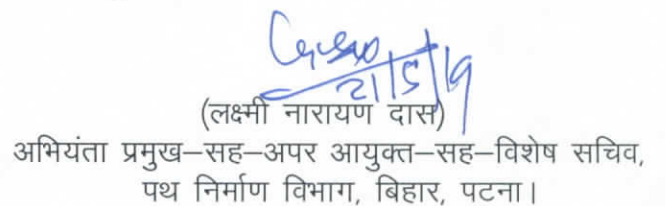 21/5/19
(लक्ष्मी नारायण दास)
अभियंता प्रमुख–सह–अपर आयुक्त–सह–विशेष सचिव,
पथ निर्माण विभाग, बिहार, पटना।